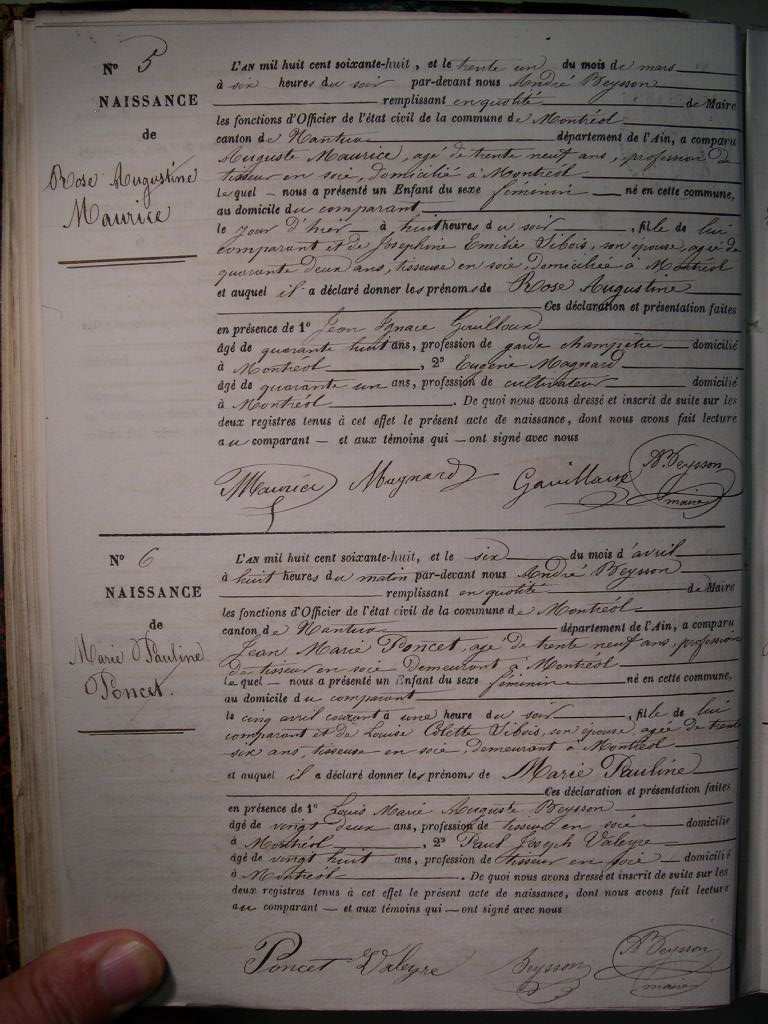 N° 5
NAISSANCE
de
Rose Augustine
Maurice
L'AN mil huit cent soixante-huit, et le trente un du mois de mars
à six heures du soir par-devant nous André Beysson
remplissant en qualité de Maire
les fonctions d'Officier de l'état civil de la commune de Montréal
canton de Nantua département de l'Ain, a comparu
Auguste Maurice, agé de trente neuf ans, profession de
tisseur en soie, domicilié à Montréal
lequel – nous a présenté un Enfant du sexe féminin né en cette commune,
au domicile du comparant
le jour d'hier à huit heures du soir, fille de lui
comparant et de Josephine Emilie Sibois, son épouse, agée de
quarante deux ans, tisseuse en soie, domiciliée à Montréal
et auquel il a déclaré donner les prénoms de Rose Augustine
Ces déclaration et présentation faites
en présence de 1° Jean Ignace Gauilloux
âgé de quarante huit ans, profession de garde champêtre domicilié
à Montréal, 2° Eugène Magnard
âgé de quarante un ans, profession de cultivateur domicilié
à Montréal. De quoi nous avons dressé et inscrit de suite sur les
deux registres tenus à cet effet le présent acte de naissance, dont nous avons fait lecture
au comparant – et aux témoins qui – ont signé avec nous
Maurice Magnard ABeysson
maire
N° 6
NAISSANCE
de
Marie Pauline
Poncet.
L'AN mil huit cent soixante-huit, et le six du mois d'avril
à huit heures du matin par-devant nous André Beysson
remplissant en qualité de Maire
les fonctions d'Officier de l'état civil de la commune de Montréal
canton de Nantua département de l'Ain, a comparu
Jean Marie Poncet, agé de trente neuf ans, profession
de tisseur en soie Demeurant à Montréal
lequel – nous a présenté un Enfant du sexe féminin né en cette commune,
au domicile du comparant
le cinq avril courant à une heure du soir, fille de lui
comparant et de Louise Colette Sibois, son épouse, agée de trente
six ans, tisseuse en soie, demeurant à Montréal
et auquel il a déclaré donner les prénoms de Marie Pauline
Ces déclaration et présentation faites
en présence de 1° Louis Marie Auguste Beysson
âgé de vingt deux ans, profession de tisseur en soie domicilié
à Montréal, 2° Paul Joseph Valeyre
âgé de vingt huit ans, profession de tisseur en soie domicilié
à Montréal. De quoi nous avons dressé et inscrit de suite sur les
deux registres tenus à cet effet le présent acte de naissance, dont nous avons fait lecture
au comparant – et aux témoins qui – ont signé avec nous
Poncet Valeyre Beysson ABeysson
maire